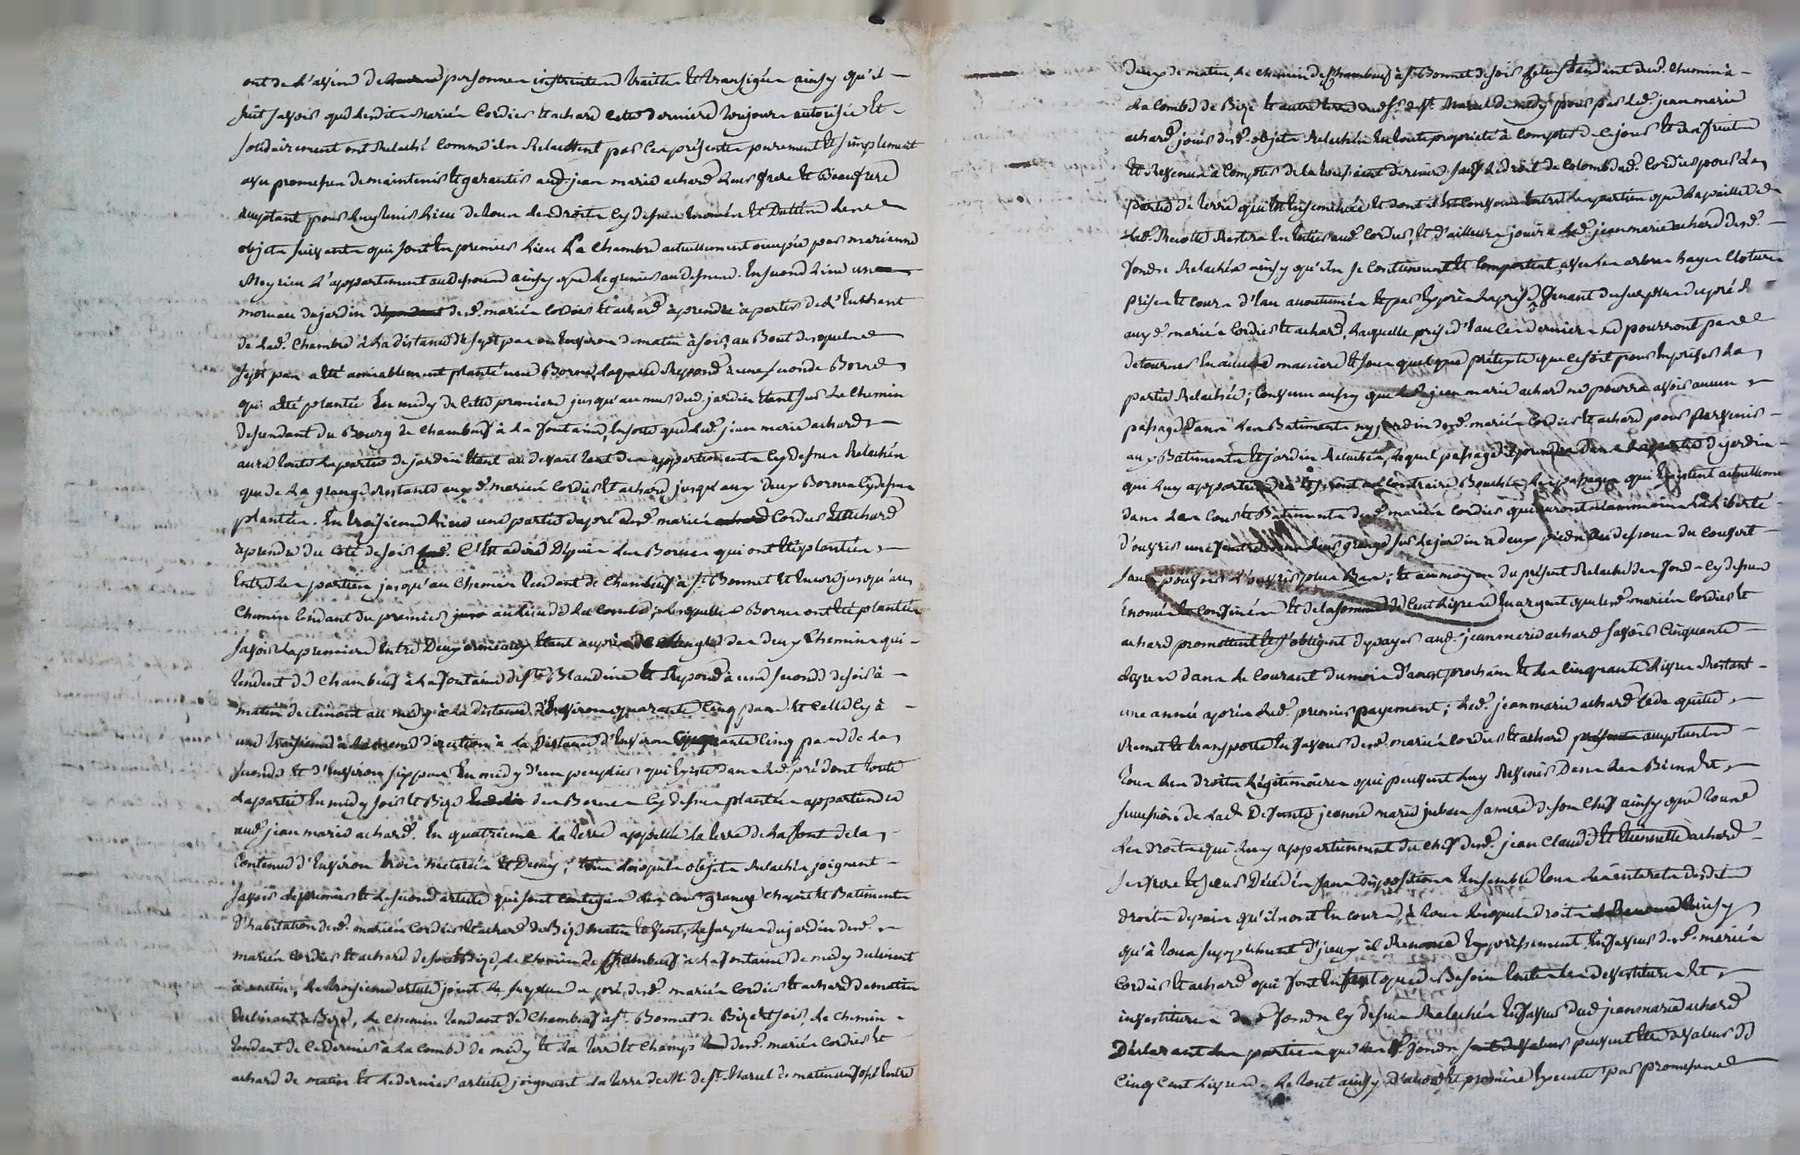 ont de l'avis de personnes instruites traitté et transigés ainsy qu'il
suit savoir que lesdits mariés Cordier et achard cette derniere toujours autorisée et
solidairement ont relaché comme ils relachent par ces présentes purement et simplement
avec promesse de maintenir et garantir aud. jean marie achard leur frere et Beaufrere
acceptant pour luy tenir lieu de tous les droits cy dessus énoncés et les
objets suivants qui sont en premier lieu La chambre actuellement occupée par marianne
L'appartement au dessous ainsy que le grenier au dessus. En second lieu un
morceau du jardin desd. mariés Cordier et achard à prendre à partir de L'
de lad. chambre à la distance de sept pas ou environ de matin à soir, au Bout desquels
sept pas a été amiablement planté une Borne, laquelle répond à une seconde Borne
qui a été plantée en midy de cette premiere jusqu'au mur dud. jardin étant sur le chemin
descendant du Bourg de chambeuf à la fontaine, ensorte que led. jean marie achard
aura toute la partie de jardin étant au devant tant des appartements cy dessus relachés
que de la grange restante auxd. mariés Cordier et achard jusqu'aux deux Bornes cy dessus
plantées. En troisieme lieu une partie du pré desd. mariés Cordier et achard
à prendre du côté de soir C'est à dire depuis les Bornes qui ont été plantées
entre les parties jusqu'au chemin tendant de chambeuf à st Bonnet et encore jusqu'au
chemin tendant du premier au lieu de la combe, lesquelles Bornes ont été plantées
savoir la premiere entre deux étant auprès de l'angle des deux chemins qui
tendent de chambeuf à la fontaine de ste Blandine et répond à une seconde de soir à
matin declinant au midy à la distance d'environ quarante cinq pas et celle cy à
une troisieme à la même direction à la distance d'environ cinquante cinq pas de la
seconde et d'environ six pas en midy d'un peuplier qui existe dans led. pré dont toute
la partie en midy soir et Bize des Bornes cy dessus plantées appartiendra
aud. jean marie achard. En quatrieme la terre appellée la terre de la font de la
contenue d'environ trois meterées et demy; tous lesquels objets relachés joignent
savoir le premier et le second article qui sont contigus les cour grange chapit et Batiments
d'habitation desd. mariés Cordier et achard de Bize matin et vent, le surplus du jardin desd.
mariés Cordier et achard de soir et Bize, le chemin de chambeuf à la fontaine de midy declinant
à matin, le troisieme article joint le surplus du pré desd. mariés Cordier et achard de matin
declinant à Bize, le chemin tendant de chambeuf à st. Bonnet de Bize et soir, le chemin
tendant de ce dernier à la combe de midy et la terre et champ desd. mariés Cordier et
achard de matin et le dernier article joignant la terre de M. de st. Marcel de matin un fossé entre
deux de matin, le chemin de chambeuf à st. Bonnet de soir dud. chemin à
la combe de Bize et autre terre dud. sr. de st. Marcel de midy pour par led. jean marie
achard jouir desd. objets relachés en toute propriété à compter de ce jour et des fruits
et revenus à compter de la toussaint derniere, sauf le droit de colon dud. Cordier pour la
partie de terre qui est ensemencée et dont il est convenu entre les parties que la paille de
lad. récolte restera en entier aud. Cordier, et d'ailleurs jouira led. jean marie achard desd.
fonds relachés ainsy qu'ils se contiennent et comportent, avec les arbres hayes clotures
prises et cours d'eau accoutumés et par exprès la prise d'eau venant du surplus du pré
auxd. mariés Cordier et achard, laquelle prise d'eau ces derniers ne pourront pas
detourner en aucune maniere et sous quelque prétexte que ce soit pour en priver la
partie relachée; convenu aussy que led. jean marie achard ne pourra avoir aucun
passage dans les Batiments ny jardin desd. mariés Cordier et achard pour parvenir
aux Batiments et jardin relachés, lequel passage il prendra dans la partie de jardin
qui luy appartiendra et seront au contraire Bouchés les passages qui existent actuellement
dans les cour et Batiments desd. mariés Cordier qui auront néanmoins la liberté
d'ouvrir une fenêtre dans leur grange sur le jardin à deux pieds au dessous du couvert
sans pouvoir l'ouvrir plus Bas; et au moyen du présent relaché des fonds cy dessus
énoncés et confinés et de la somme de Cent livres en argent que lesd. mariés Cordier et
achard promettent et s'obligent de payer aud. jean marie achard savoir cinquante
livres dans le courant du mois d'aoust prochain et les cinquante livres restant
une année après led. premier payement; led. jean marie achard cede quitte
remet et transporte en faveur desd. mariés Cordier et achard acceptants
tous les droits légitimaires qui peuvent luy revenir dans les Biens et
succession de lad. defunte jeanne marie jullien sa mere de son chef ainsy que tous
les droits qui luy appartiennent du chef desd. jean Claude et Etiennette achard
ses frere et sœur décédés sans disposition Ensemble tous les interets desdits
droits depuis qu'ils ont eu cours, à tous lesquels droits ainsy
qu'à tous supplement d'iceux il renonce expressement en faveur desd. mariés
Cordier et achard qui sont en tant que de Besoin toutes les devestitures et
investitures des fonds cy dessus relachés en faveur dud. jean marie achard
Déclarant les parties que les d. fonds peuvent être de valeur de
Cinq cent livres. Le tout ainsy d'accord et promis executer par promesse